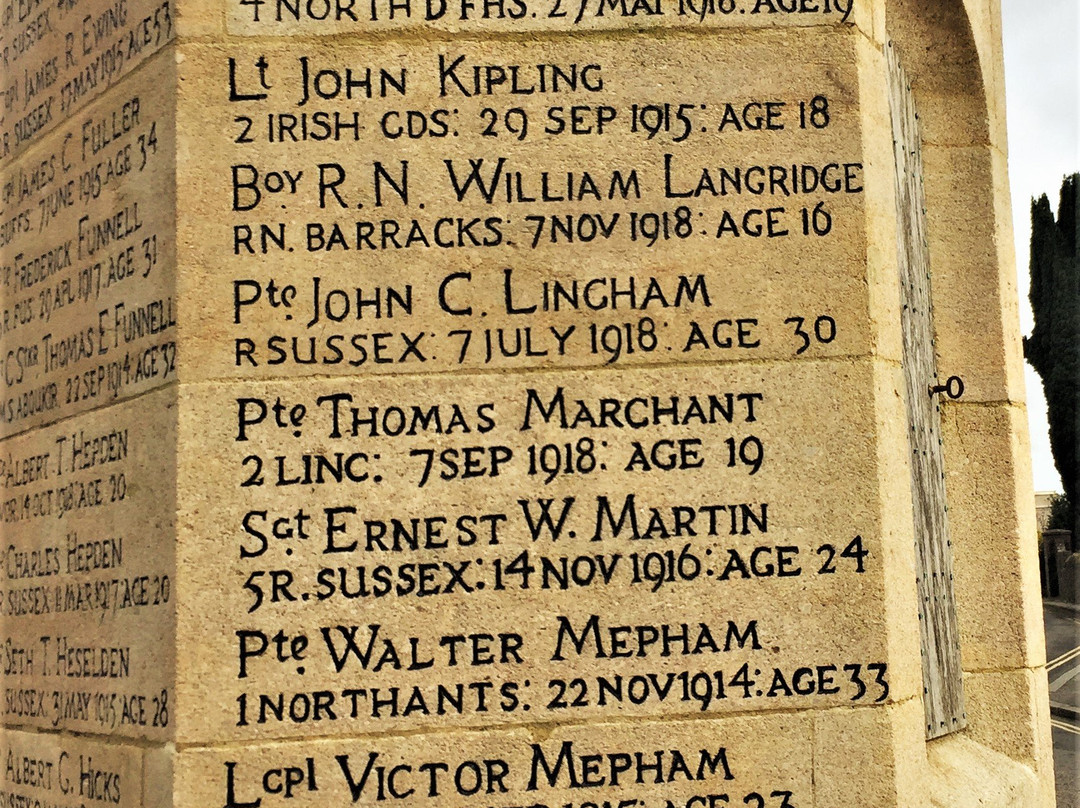 JAMES R. EWING
R SUSSEX 17 MAY 1915 AGE 53
JAMES C FULLER
BUFFS. 7 JUNE 1915 AGE 34
FREDERICK FUNNELL
R. FUS. 29 APL 1917. AGE 31
THOMAS E FUNNELL
ABOUKIR. 22 SEP 1914. AGE 32
ALBERT T. HEPDEN
14 OCT 1918: AGE 20
CHARLES HEPDEN
SUSSEX 11 MAR 1917 AGE 20
SETH T. HESELDEN
SUSSEX: 31 MAY 1915 AGE 28
ALBERT G. HICKS
4 NORTH'D FHS. 27 MAY 1918. AGE 19
Lt JOHN KIPLING
2 IRISH GDS: 29 SEP 1915: AGE 18
BOY R.N. WILLIAM LANGRIDGE
RN. BARRACKS: 7 NOV 1918: AGE 16
Pte JOHN C. LINGHAM
R SUSSEX: 7 JULY 1918: AGE 30
Pte THOMAS MARCHANT
2 LINC: 7 SEP 1918: AGE 19
Sgt ERNEST W. MARTIN
5 R. SUSSEX: 14 NOV 1916: AGE 24
Pte WALTER MEPHAM.
1 NORTHANTS: 22 NOV 1914: AGE 33
Lcpl VICTOR MEPHAM
1915: AGE 23